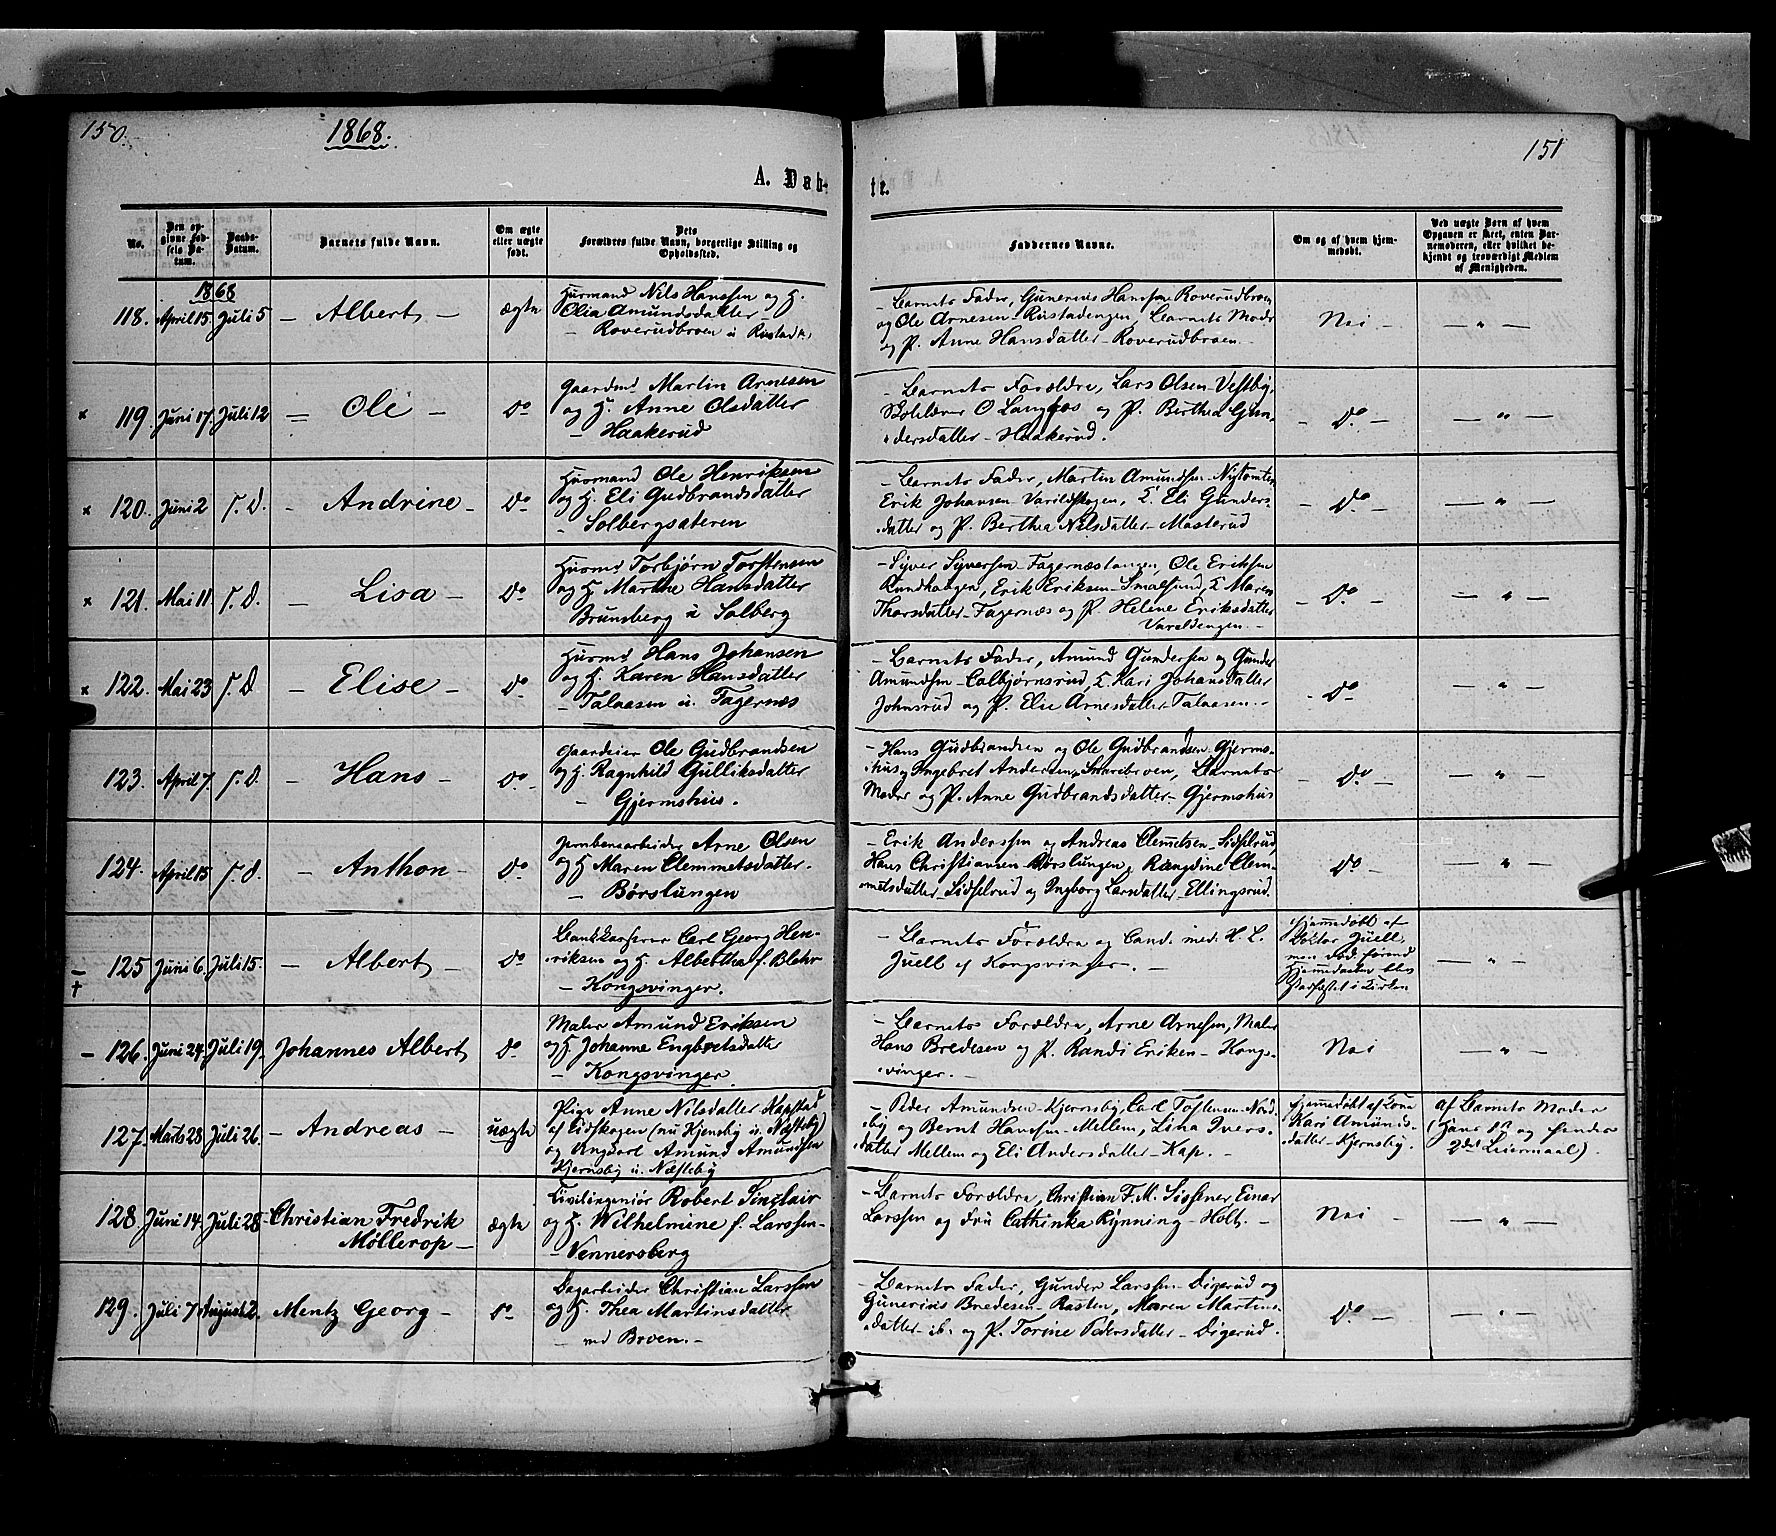 150.
1868.
151
A. Dåb-
te.
No.
Den opgivne Fødsels Datum.
Daabs-Datum.
Barnets fulde Navn.
Om ægte eller uægte født.
Dets Forældres fulde Navn, borgerlige Stilling og Opholdssted.
Faddernes Navne.
Om og af hvem hjemmedøbt.
Ved uægte Børn af hvem Opgaven er skeet, enten Barnemoderen, eller hvilket bekjendt og troværdigt Medlem af Menigheden.
1868
118. April 15 Juli 5 — Albert — ægte
Huusmand Nils Hanssen og H.
Olia Amundsdatter
— Roverudbroen u. Rustad
— Barnets Fader, Gunerius Hanssen Roverudbroen
og Ole Arnesen Rustadengen, Barnets Moder
og P. Anne Hansdatter Roverudbroen
Nei — — " —
× 119. Juni 17. Juli 12 — Ole — Do
Gaardmd Martin Arnesen
og H. Anne Olsdatter
— Haakerud
— Barnets Forældre, Lars Olsen Vestby,
Skolelærer O Langaas og P. Berthea Gun-
dersdatter — Haakerud.
— Do — — " —
× 120. Juni 2 S. D. — Andrine — Do
Huusmand Ole Henriksen
og H. Eli Gudbrandsdatter
— Solbergsæteren
— Barnets Fader, Martin Amundsen Nystomten
Erik Johansen Varildskogen, T. Eli Gunders-
datter og P. Berthea Nilsdatter — Masterud
— Do — — " —
× 121. Mai 11 S. D. — Lisa — Do
Huusmd Torbjørn Torstensen
og H. Marthe Hansdatter
Brunsberg u Solberg
— Syver Syversen Fagernæstangen, Ole Eriksen
Rundhaugen, Erik Eriksen Smalsund, T Maren
Thorsdatter Fagernæs og P Helene Eriksdatter
Varaldengen —
— Do — — " —
× 122. Mai 23 S. D — Elise — Do
Huusmd Hans Johansen
og H. Karen Hansdatter
— Talaasen u. Fagernæs
— Barnets Fader, Amund Gundersen og Gunder
Amundsen — Colbjørnsrud, T. Kari Johansdatter
Johnsrud og P. Elie Arnesdatter Talaasen —
— Do — — " —
123. April 7. S. D. — Hans — Do
Gaardeier Ole Gudbrandsen
og H. Ragnhild Gulliksdatter
— Gjermshus.
— Hans Gudbrandsen og Ole Gudbrandsen Gjerms-
hus, Ingebret Andersen Snarebroen, Barnets
Moder og P. Anne Gudbrandsdatter — Gjermshus
— Do — — " —
124. April 15 S. D. — Anthon — Do
Jernbanearbeider Arne Olsen
og H Maren Clemmetsdatter
— Børslungen
— Erik Anderssen og Andreas Clemetsen — Lidselrud,
Hans Christiansen Børslungen, Rangdine Clem-
metsdatter Lidselrud og Ingborg Larsdatter — Ellingsrud.
Do — " —
† 125 Juni 6. Juli 15. — Albert — Do
Bankkasserer Carl Georg Hen-
riksen og H Alberthe f. Blehr
— Kongsvinger.
— Barnets Forældre og Cand. med. H. L.
Juell af Kongsvinger. —
Hjemmedøbt af
Doktor Juell,
men død førend
Hjemmedaaben blev
stadfæstet i Kirken
— " —
— 126. Juni 24. Juli 19. Johannes Albert Do
Maler Amund Eriksen
og H. Johanne Engbretsdatter
— Kongsvinger.
— Barnets Forældre, Arne Arnesen, Maler
Hans Bredesen og P. Randi Eriken — Kongs-
vinger. —
Nei — " —
127. Marts 28 Juli 26. — Andreas — uægte
Pige Anne Nilsdatter Kapstad
af Eidskogen (nu Kjernsby u. Næsteby)
og Ungkarl Amund Amundsen
Kjernsby u. Næsteby
— Peder Amundsen — Kjernsby, Carl Tostensen Nord-
by og Bernt Hanssen — Mellem, Lina Ivers-
datter Mellem og Eli Andersdatter — Kap. —
Hjemmedøbt af Kone
Kari Amunds-
datter — Kjernsby.
af Barnets Moder
(hans 1ste og hendes
2det Leiermaal).
128. Juni 14. Juli 28. Christian Fredrik
Møllerop — ægte
Civilingeniør Robert Sinclair
og H. Wilhelmine f. Larssen —
— Vennersberg
— Barnets Forældre, Christian F. M. Sissener Einar
Larssen og Fru Cathinka Rynning — Holt. —
Nei — — " —
129. Juli 7 August 2. Mentz Georg — Do
Dagarbeider Christian Larssen
og H. Thea Martinsdatter
— ved Broen. —
— Barnets Fader, Gunder Larssen — Digerud og
Gunerius Bredesen — Rasten, Maren Martins-
datter — ib. og P. Torine Pedersdatter — Digerud.
Do. — — " —